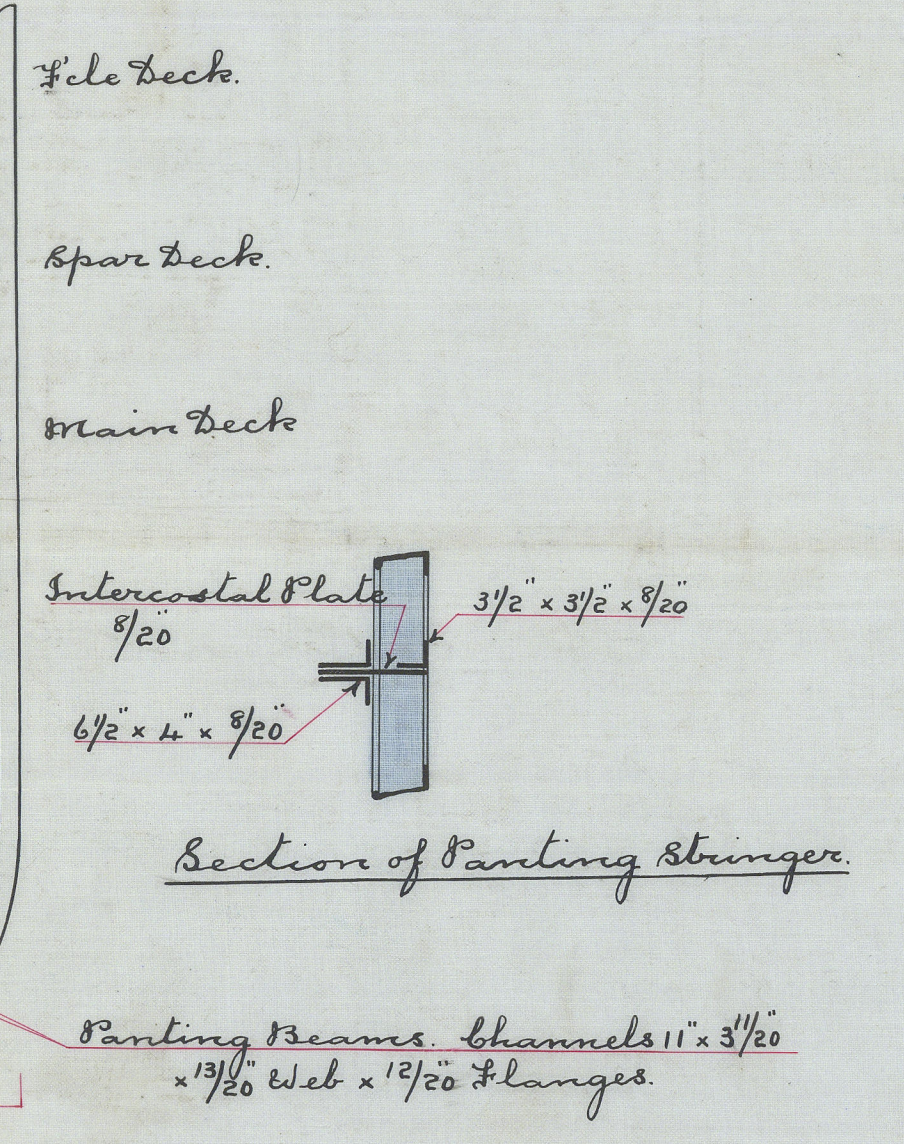 F'cle Deck.
Spar Deck.
Main Deck
Intercostal Plate
8/20"
3 1/2" x 3 1/2" x 8/20"
6 1/2" x 4" x 8/20"
Section of Panting Stringer.
Panting Beams. Channels 11" x 3 11/20"
x 13/20" Web x 12/20" Flanges.